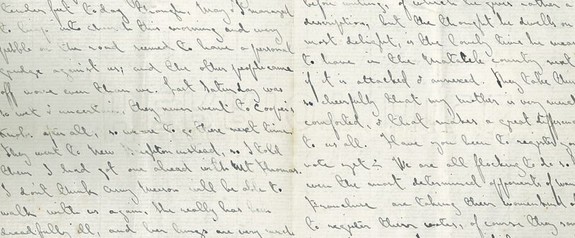 to day
to this morning and every
pebble on the road seemed to have a personal
grudge against us, and the other people came
off worse even than we. Last Saturday was
so wet & uncertain they never went to Cooper's
after all, so we are to go there next time
They went to New Brighton instead, so I told
them I had got one ahead with Mt Thomas.
I don't think Amy Mearon will be able to
walk with us again. She really has been
dreadfully ill, and her lungs are very weak
before, of which he gives rather a
description, but the thought he dwells on with
most delight, is the lovely time he means
to have in the country next
if it is attacked & answered. They take things
so cheerfully that my mother is very much
comforted, & that makes a great difference
to us all. Have you been to register your
vote yet? We are all flocking to do so
even the most determined opponents of women
franchise are taking their womenkind
to register their votes, of course they say